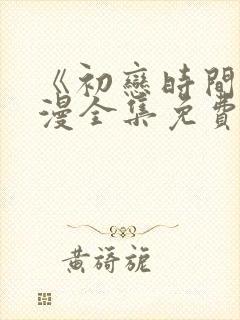 《初戀時間
漫全集免費
黃旖旎